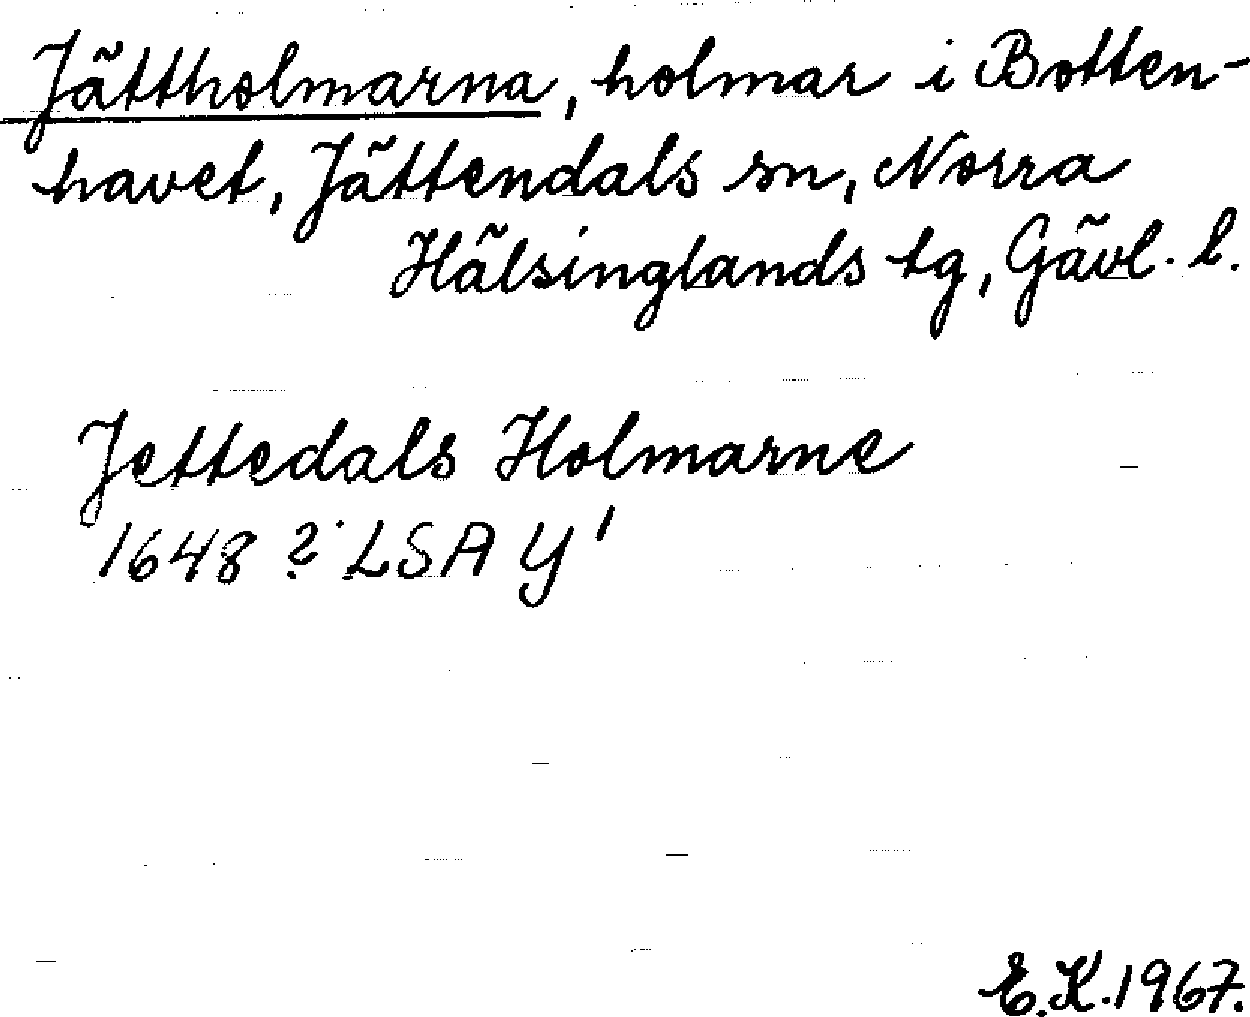 Jättholmarna, holmar i Botten-
havet, Jättendals sn, Norra
Hälsinglands tg, Gävl. l.
Jettedals Holmarne
1648 ? LSA Y¹
E.K. 1967.